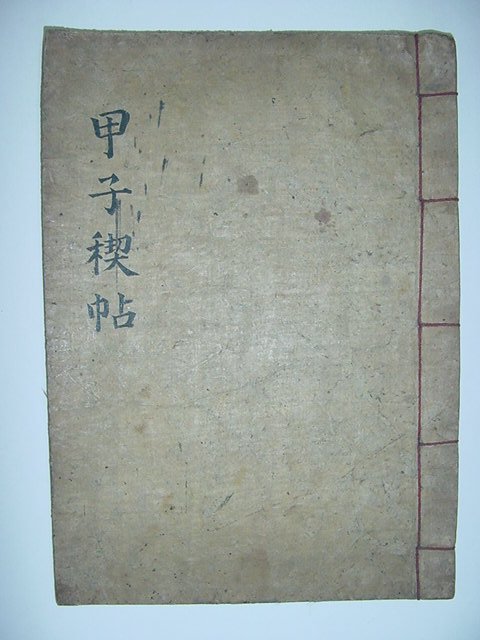 甲子稧帖